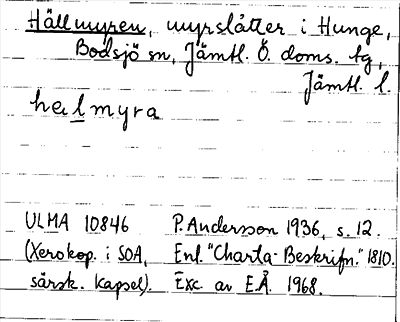 Hällmyren, myrslåtter i Hunge,
Bodsjö sn, Jämtl. Ö. doms. tg,
Jämtl. l.
helmyra
ULMA 10846 P. Andersson 1936, s. 12.
(Xerokop. i SOA, Enl. "Charta-Beskrifn." 1810.
särsk. kapsel). Exc. av E.Å. 1968.